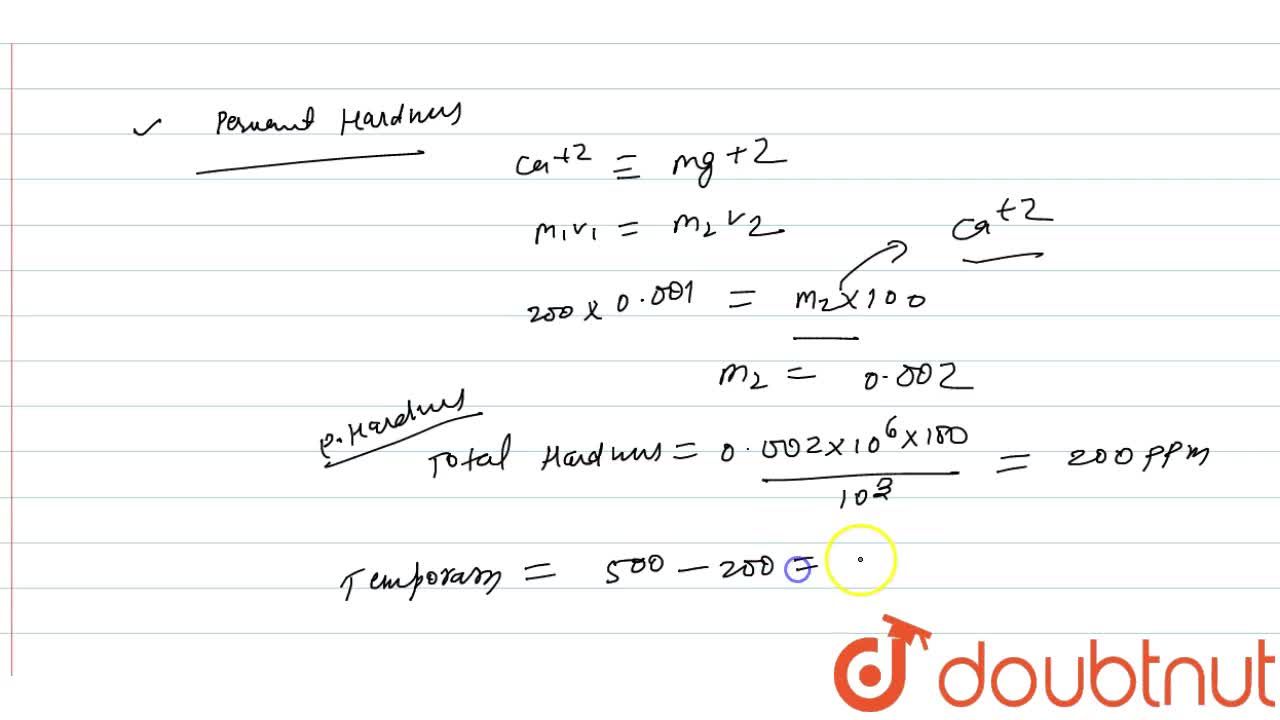 ✓ Permant Hardness
Ca+2 ≡ mg+2
m1v1 = m2v2
Ca+2
200 x 0.001 = m2 x 100
m2 = 0.002
P. Hardness
Total Hardness = 0.002 x 10^6 x 100 / 10^3 = 200 ppm
Temporary = 500 - 200 =
doubtnut